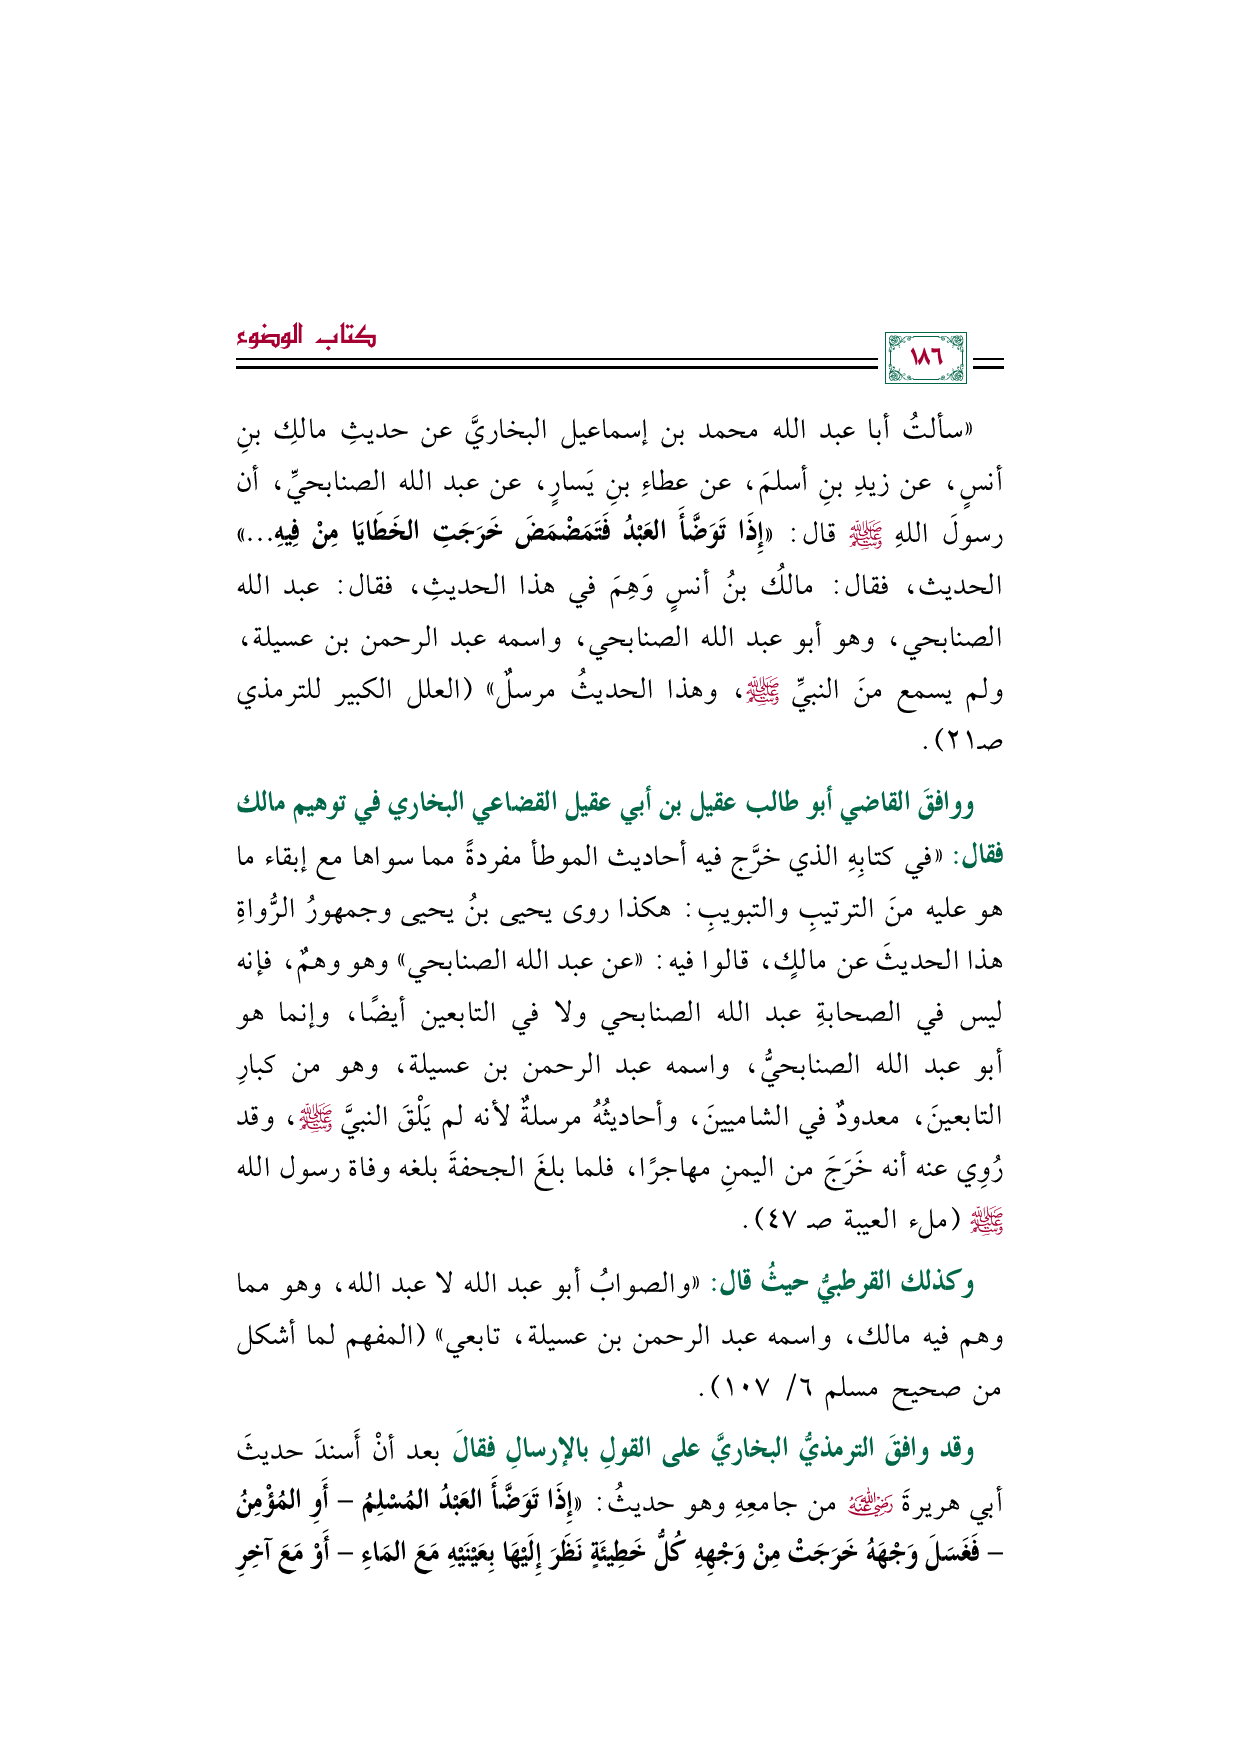 كتاب الوضوء
١٨٦
«سألتُ أبا عبد الله محمد بن إسماعيل البخاريَّ عن حديثِ مالكِ بنِ
أنسٍ، عن زيدِ بنِ أسلمَ، عن عطاءِ بنِ يَسارٍ، عن عبد الله الصنابحيِّ، أن
رسولَ اللهِ ﷺ قال: «إِذَا تَوَضَّأَ العَبْدُ فَتَمَضْمَضَ خَرَجَتِ الخَطَايَا مِنْ فِيهِ...»
الحديث، فقال: مالكُ بنُ أنسٍ وَهِمَ في هذا الحديثِ، فقال: عبد الله
الصنابحي، وهو أبو عبد الله الصنابحي، واسمه عبد الرحمن بن عسيلة،
ولم يسمع منَ النبيِّ ﷺ، وهذا الحديثُ مرسلٌ» (العلل الكبير للترمذي
صـ٢١).
ووافقَ القاضي أبو طالب عقيل بن أبي عقيل القضاعي البخاري في توهيم مالك
فقال: «في كتابِهِ الذي خرَّج فيه أحاديث الموطأ مفردةً مما سواها مع إبقاء ما
هو عليه منَ الترتيبِ والتبويبِ: هكذا روى يحيى بنُ يحيى وجمهورُ الرُّواةِ
هذا الحديثَ عن مالكٍ، قالوا فيه: «عن عبد الله الصنابحي» وهو وهمٌ، فإنه
ليس في الصحابةِ عبد الله الصنابحي ولا في التابعين أيضًا، وإنما هو
أبو عبد الله الصنابحيُّ، واسمه عبد الرحمن بن عسيلة، وهو من كبارِ
التابعينَ، معدودٌ في الشاميينَ، وأحاديثُهُ مرسلةٌ لأنه لم يَلْقَ النبيَّ ﷺ، وقد
رُوِي عنه أنه خَرَجَ من اليمنِ مهاجرًا، فلما بلغَ الجحفةَ بلغه وفاة رسول الله
ﷺ (ملء العيبة صـ ٤٧).
وكذلك القرطبيُّ حيثُ قال: «والصوابُ أبو عبد الله لا عبد الله، وهو مما
وهم فيه مالك، واسمه عبد الرحمن بن عسيلة، تابعي» (المفهم لما أشكل
من صحيح مسلم ٦/ ١٠٧).
وقد وافقَ الترمذيُّ البخاريَّ على القولِ بالإرسالِ فقالَ بعد أنْ أَسندَ حديثَ
أبي هريرةَ رَضِيَ اللهُ عَنْهُ من جامعِهِ وهو حديثُ: «إِذَا تَوَضَّأَ العَبْدُ المُسْلِمُ – أَوِ المُؤْمِنُ
– فَغَسَلَ وَجْهَهُ خَرَجَتْ مِنْ وَجْهِهِ كُلُّ خَطِيئَةٍ نَظَرَ إِلَيْهَا بِعَيْنَيْهِ مَعَ المَاءِ – أَوْ مَعَ آخِرِ